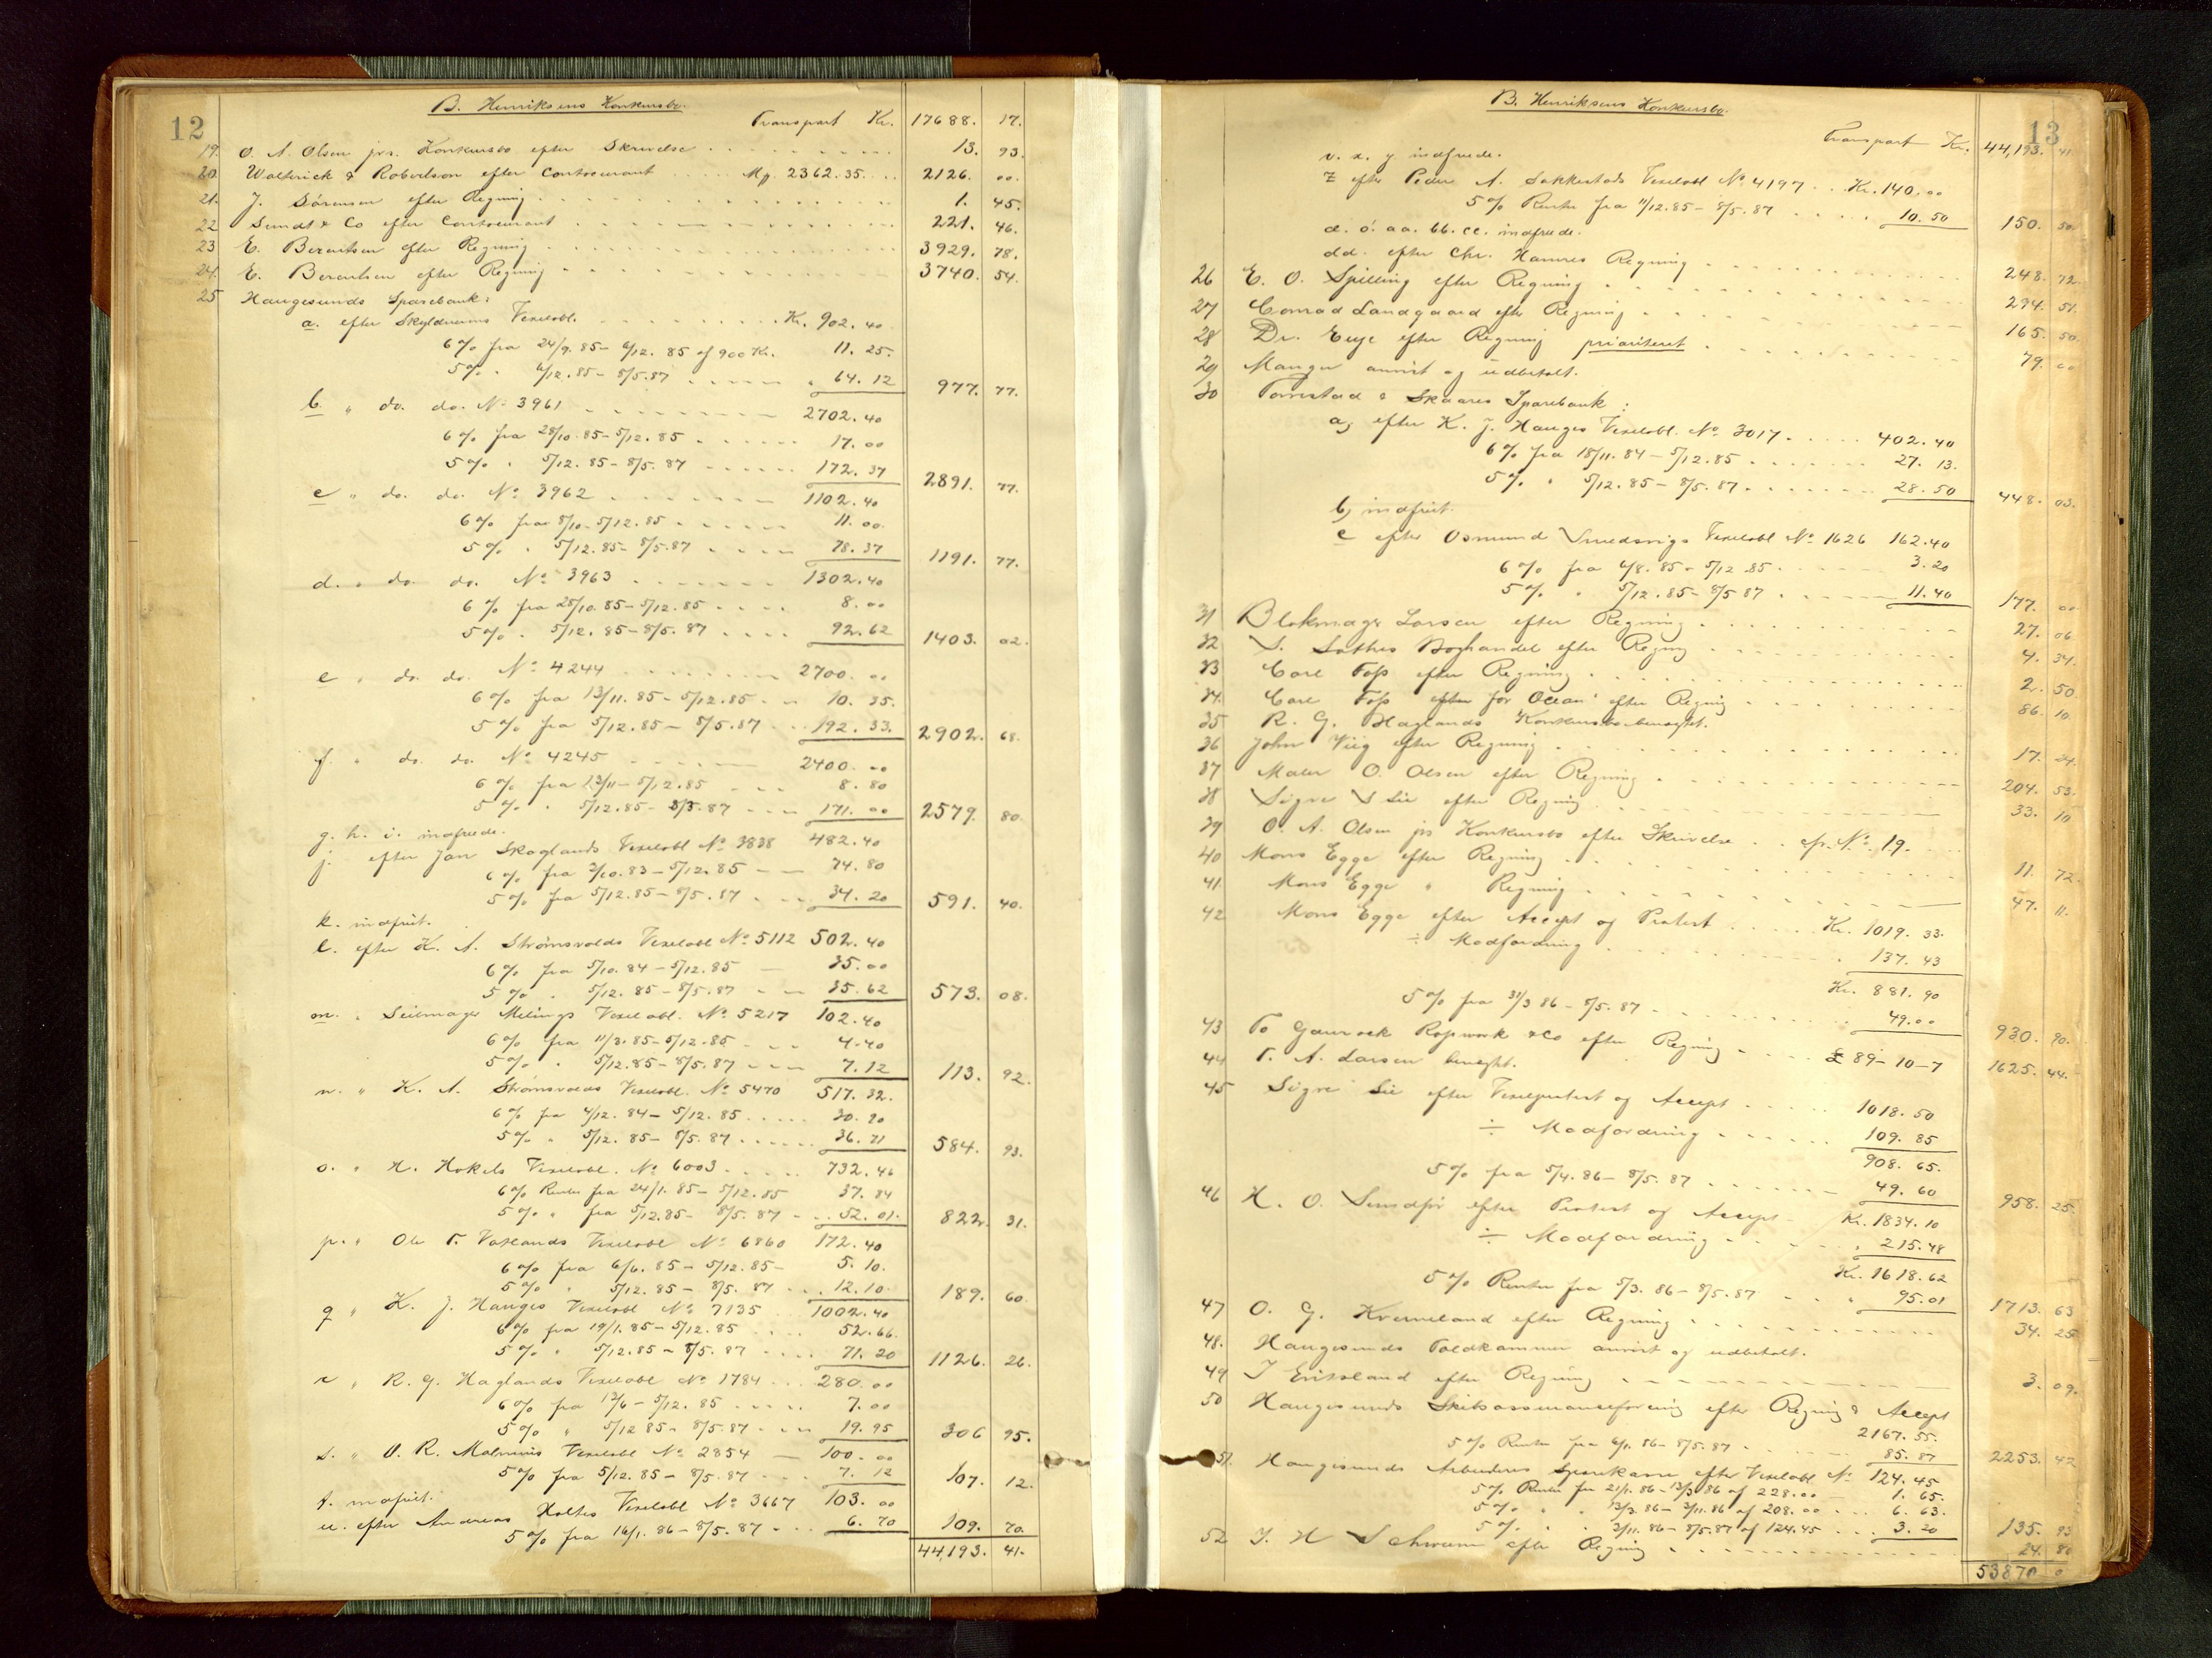 12
B. Henriksens Konkursbo.
Transport Kr. 17688. 17.
19. O. A. Olsen jrs. Konkursbo efter Skrivelse 13. 93.
20. Walterick & Robertson efter Contocurant Mp. 2362.35. 2126. 00.
21. J. Sörensen efter Regning 1. 45.
22 Sundt & Co efter Contocurant 221. 46.
23 E. Berentsen efter Regning 3929. 78.
24. E. Berentsen efter Regning 3740. 54.
25 Haugesunds Sparebank:
a. efter Skyldnerens Vexelobl. Kr. 902. 40
6% fra 24/9. 85 - 5/12. 85 af 900 Kr. 11. 25.
5% " 5/12. 85 - 8/5.87 " 64. 12 977. 77.
b. " do. do. No 3961 2702. 40
6% fra 28/10. 85 - 5/12. 85 17. 00
5% " 5/12. 85 - 8/5. 87 172. 37 2891. 77.
c " do. do. No 3962 1102. 40
6% fra 8/10 - 5/12. 85 11. 00.
5% " 5/12. 85 - 8/5.87 78. 37 1191. 77.
d. " do. do. No 3963 1302. 40
6% fra 28/10. 85 - 5/12. 85 8. 00
5% " 5/12. 85 - 8/5. 87 92. 62 1403. 02.
e " do. do. No 4244 2700. 00
6% fra 13/11. 85 - 5/12. 85 10. 35.
5% fra 5/12. 85 - 8/5. 87 192. 33. 2902. 68.
f. " do. do. No 4245 2400. 00
6% fra 13/11 - 5/12. 85 8. 80
5% " 5/12. 85 - 8/5. 87 171. 00 2579. 80.
g. h. i. indfriede.
j. efter Jan Skoglands Vexelobl No 3838 482. 40
6% fra 3/10. 83 - 5/12. 85 74. 80
5% fra 5/12. 85 - 8/5. 87 34. 20 591. 40.
k. indfriet.
l. efter K. A. Strömsvolds Vexelobl No 5112 502. 40
6% fra 5/10. 84 - 5/12. 85 35. 00
5% " 5/12. 85 - 8/5. 87 35. 62 573. 08.
m. " Seilmager Melings Vexelobl. No 5217 102. 40
6% fra 11/3. 85 - 5/12. 85 4. 40
5% " 5/12. 85 - 8/5. 87 7. 12 113. 92.
n. " K. A. Strömsvolds Vexelobl. No 5470 517. 32.
6% fra 4/12. 84 - 5/12. 85 30. 90
5% " 5/12. 85 - 8/5. 87 36. 71 584. 93.
o. " H. Hokels Vexelobl. No 6003 732. 46
6% Renter fra 24/1. 85 - 5/12. 85 37. 84
5% " fra 5/12. 85 - 8/5. 87 52. 01. 822. 31.
p. " Ole T. Vatlands Vexelobl No 6860 172. 40
6% fra 6/6. 85 - 5/12. 85 5. 10.
5% " 5/12. 85 - 8/5. 87 12. 10. 189. 60.
q " K. J. Hauges Vexelobl No 7135 1002. 40
6% fra 19/1. 85 - 5/12. 85 52. 66.
5% " 5/12. 85 - 8/5. 87 71. 20 1126. 26.
r " R. G. Haglands Vexelobl No 1784 280. 00
6% fra 13/6 - 5/12. 85 7. 00
5% " 5/12 85 - 8/5. 87 19. 95 306 95.
s. " O. R. Vexelobl No 2854 100. 00
5% fra 5/12. 85 - 8/5. 87 7. 12 107. 12.
t. indfriet.
u. efter Andreas Holtes Vexelobl No 3667 103. 00
5% fra 16/1. 86 - 8/5. 87 6. 70 109. 70.
44,193. 41.
13
B. Henriksens Konkursbo.
Transport Kr. 44,193. 41
v. x. y. indfriede.
z efter Peder A. Sakkestads Vexelobl No 4197 Kr. 140. 00
5% Renter fra 11/12. 85 - 8/5. 87 10. 50 150. 50.
æ. ö. aa. bb. cc. indfriede.
dd. efter Chr. Hamres Regning 248. 72.
26 E. O. Spilling efter Regning 294. 51.
27 Conrad Landgaard efter Regning 165. 50.
28 Dr. efter Regning prioriteret 79. 00
29 Manger anvist og udbetalt.
30 Torvestad & Skaares Sparebank:
a, efter K. J. Hauges Vexelobl. No 3017 402. 40
6% fra 18/11. 84 - 5/12. 85 27. 13.
5% " 5/12. 85 - 8/5. 87 28. 50 448. 03.
b, indfriet.
c efter Osmund Vexelobl No 1626 162. 40
6% fra 6/8. 85 - 5/12 85 3. 20
5% " 5/12. 85 - 8/5 87 11. 40 177. 00
31 Blokmager Larsen efter Regning 27. 06.
32 S. Sathes Boghandel efter Regng 4. 34.
33 Carl Foss efter Regning 2. 50
34. Carl Foss for Ocean efter Regning 86. 10.
35 R. G. Haglands Konkursbo benegtet.
36 John Viig efter Regning 17. 24.
37 Maler O. Olsen efter Regning 204. 53.
38 Sigve S Lie efter Regning 33. 10
39 O. A. Olsen jrs Konkursbo efter Skrivelse cfr. No 19.
40 Mons Egge efter Regning 11. 72.
41. Mons Egge " Regning 47. 11.
42 Mons Egge efter Accept og Protest Kr. 1019. 33.
÷ Modfordring 137. 43
Kr. 881. 90
5% fra 31/3 86 - 8/5. 87 49. 00 930. 90.
43 To Gourock Ropework & Co efter Regning £ 89-10-7 1625. 44.
44 T. A. Larsen benegtet.
45 Sigve Lie efter Vexelprotest og Accept 1018. 50
÷ Modfordring 109. 85
908. 65.
5% fra 5/4. 86 - 8/5. 87 49. 60 958. 25.
46 H. O. efter Protest og Accept Kr. 1834. 10
÷ Modfordring " 215. 48
Kr. 1618. 62
5% Renter fra 5/3. 86 - 8/5. 87 95. 01 1713. 63
47 O. G. Kverneland efter Regning 34. 25
48. Haugesunds Toldkammer anvist og udbetalt.
49 T Eriksland efter Regning 3. 09.
50 Haugesunds Skibsassuranceforening efter Regning & Accept
2167. 55.
5% Renter fra 6/1. 86 - 8/5. 87 85. 87 2253. 42
51. Haugesunds Arbeideres Sparekasse efter Vexelobl No 124. 45
5% Renter fra 21/1. 86 - 13/3 86 af 228. 00 1. 65.
5% " " 13/3. 86 - 3/11. 86 af 208. 00 6. 63.
5% " " 3/11. 86 - 8/5. 87 af 124. 45 3. 20 135. 93
52 J. H Schwenn efter Regning 24. 80
53870